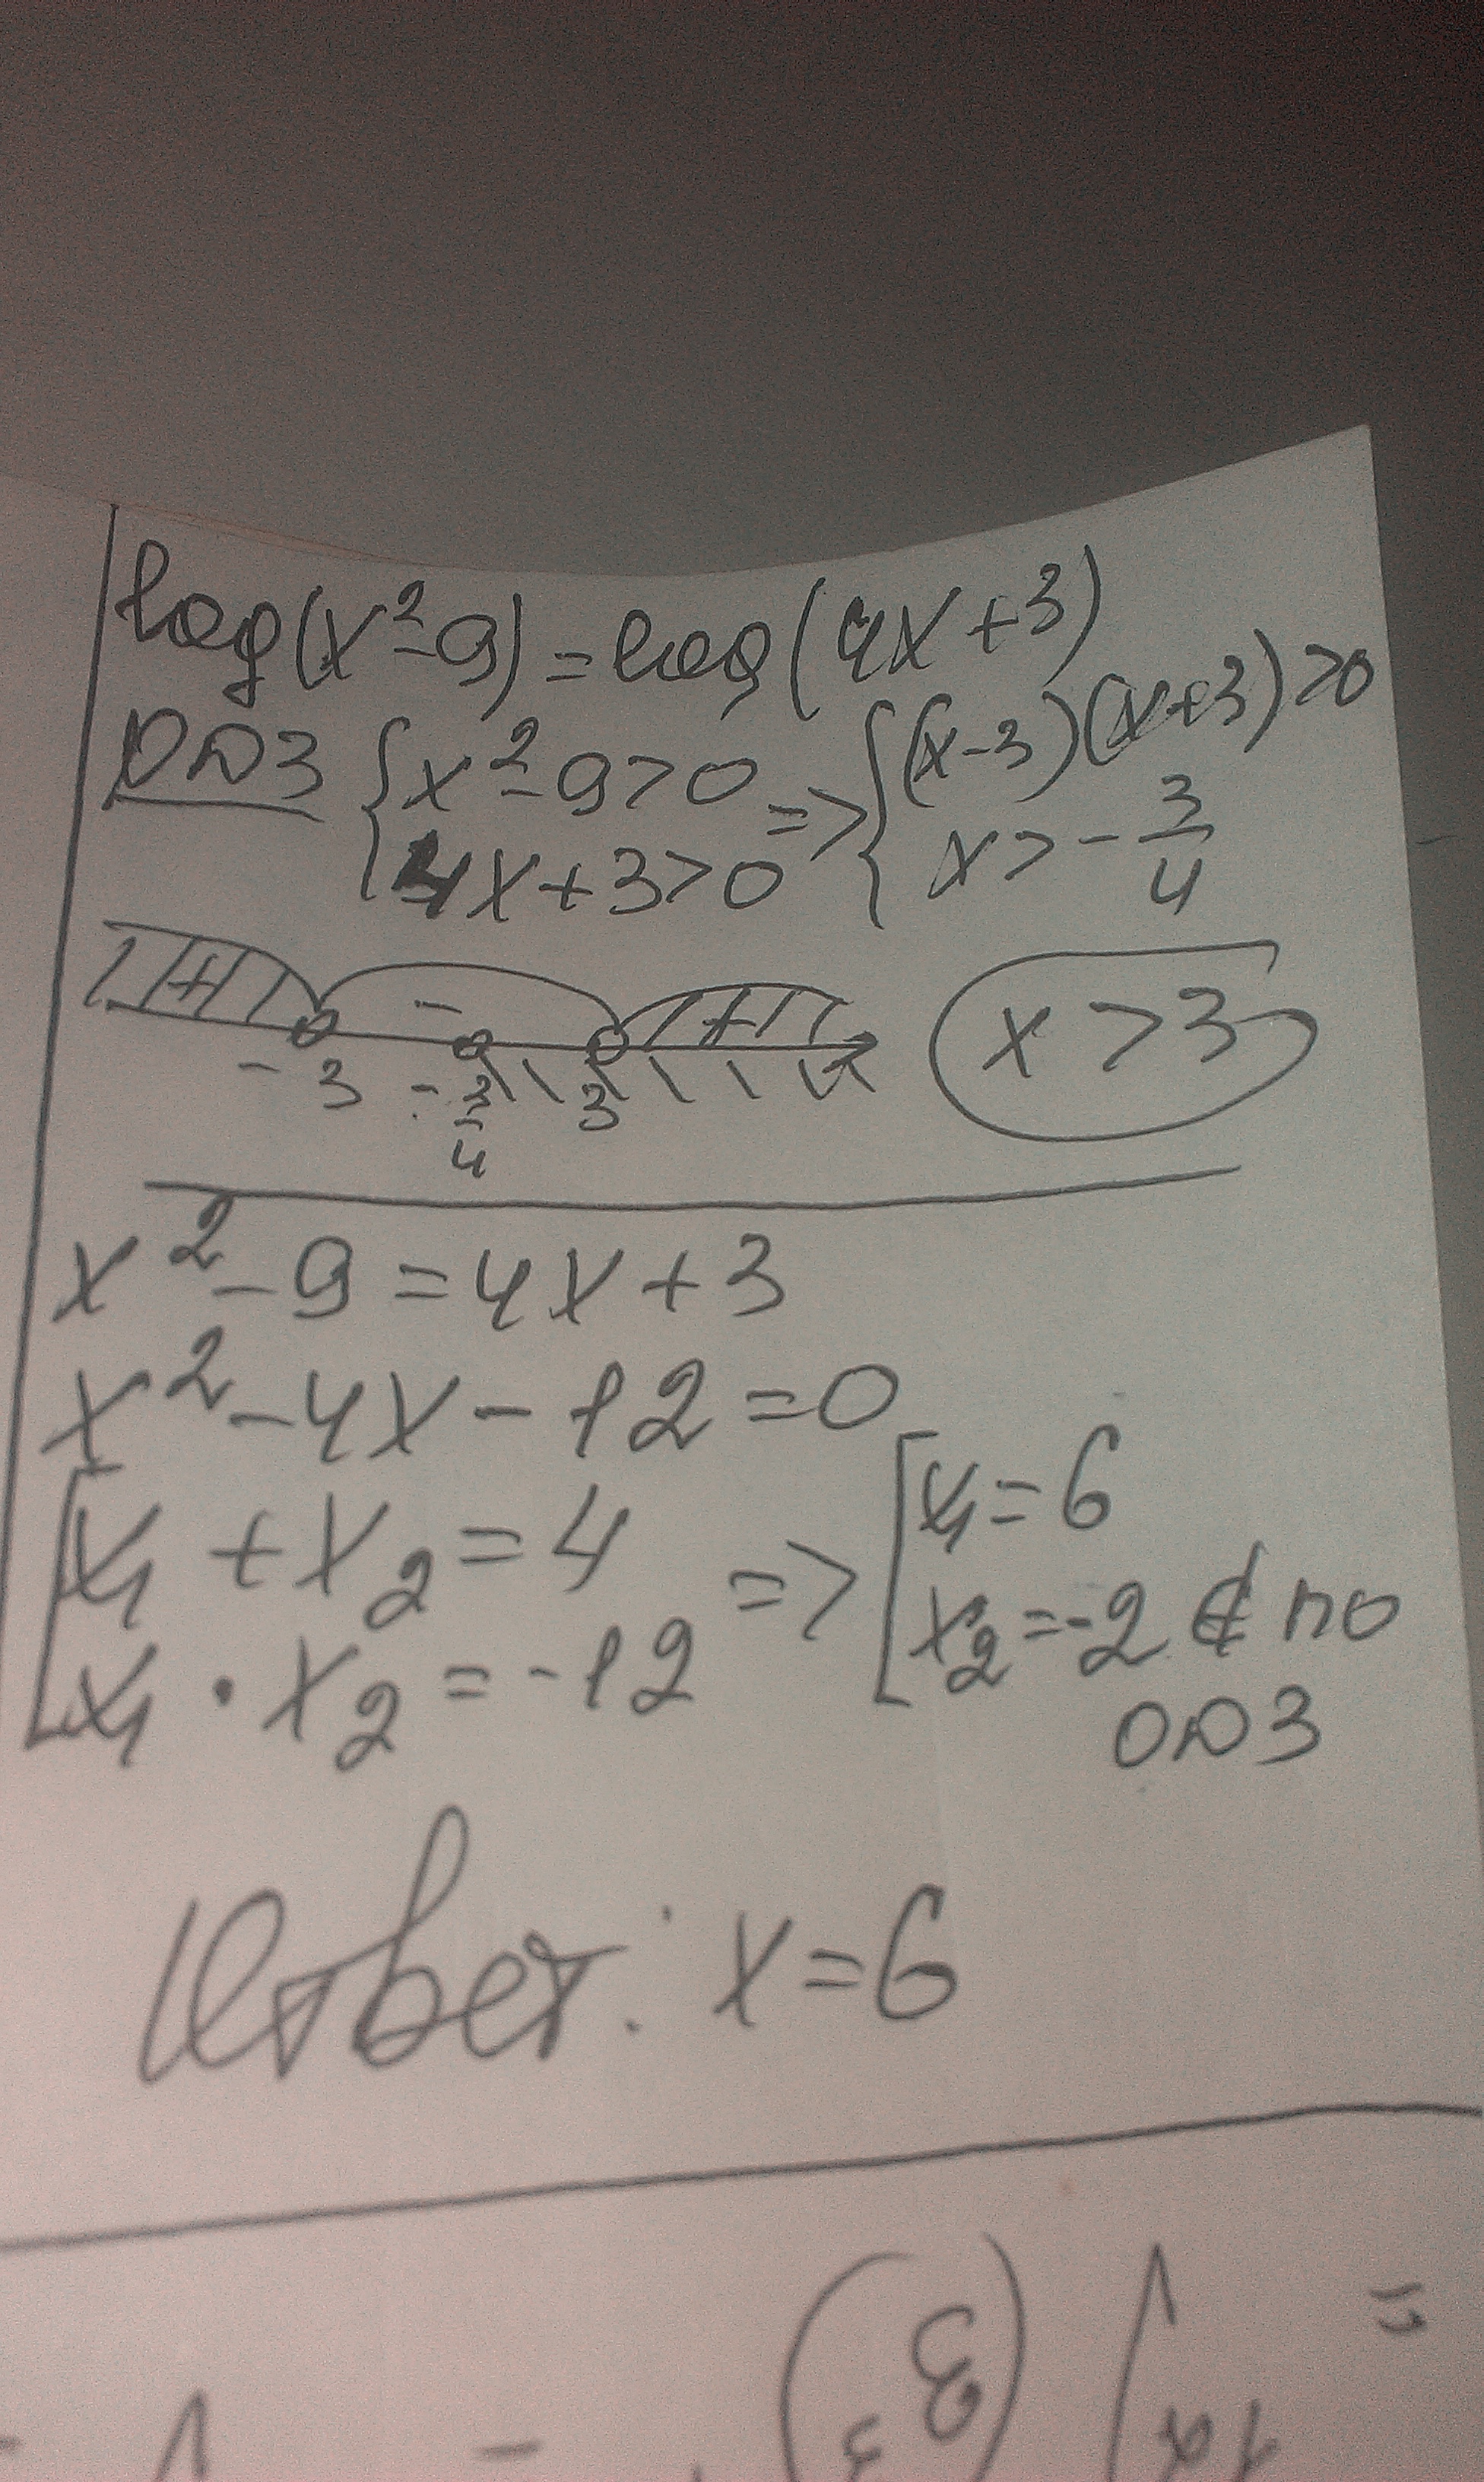 log(x²-9)=log(4x+3)
ОДЗ { x²-9>0 => { (x-3)(x+3)>0
4x+3>0 x>-3/4
+ - +
-3 -3/4 3 x>3
x²-9=4x+3
x²-4x-12=0
[ x₁+x₂=4 => [ x₁=6
x₁·x₂=-12 x₂=-2 ∉ по
ОДЗ
Ответ: x=6